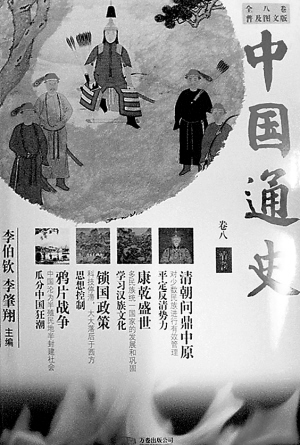 全八卷
普及图文版
中国通史
卷八
清朝问鼎中原
对少数民族进行有效管理
平定反清势力
康乾盛世
多民族统一国家的发展和巩固
学习汉族文化
锁国政策
科技停滞，大大落后于西方
思想控制
鸦片战争
中国沦为半殖民地半封建社会
瓜分中国狂潮
李伯钦 李肇翔 主编
万卷出版公司